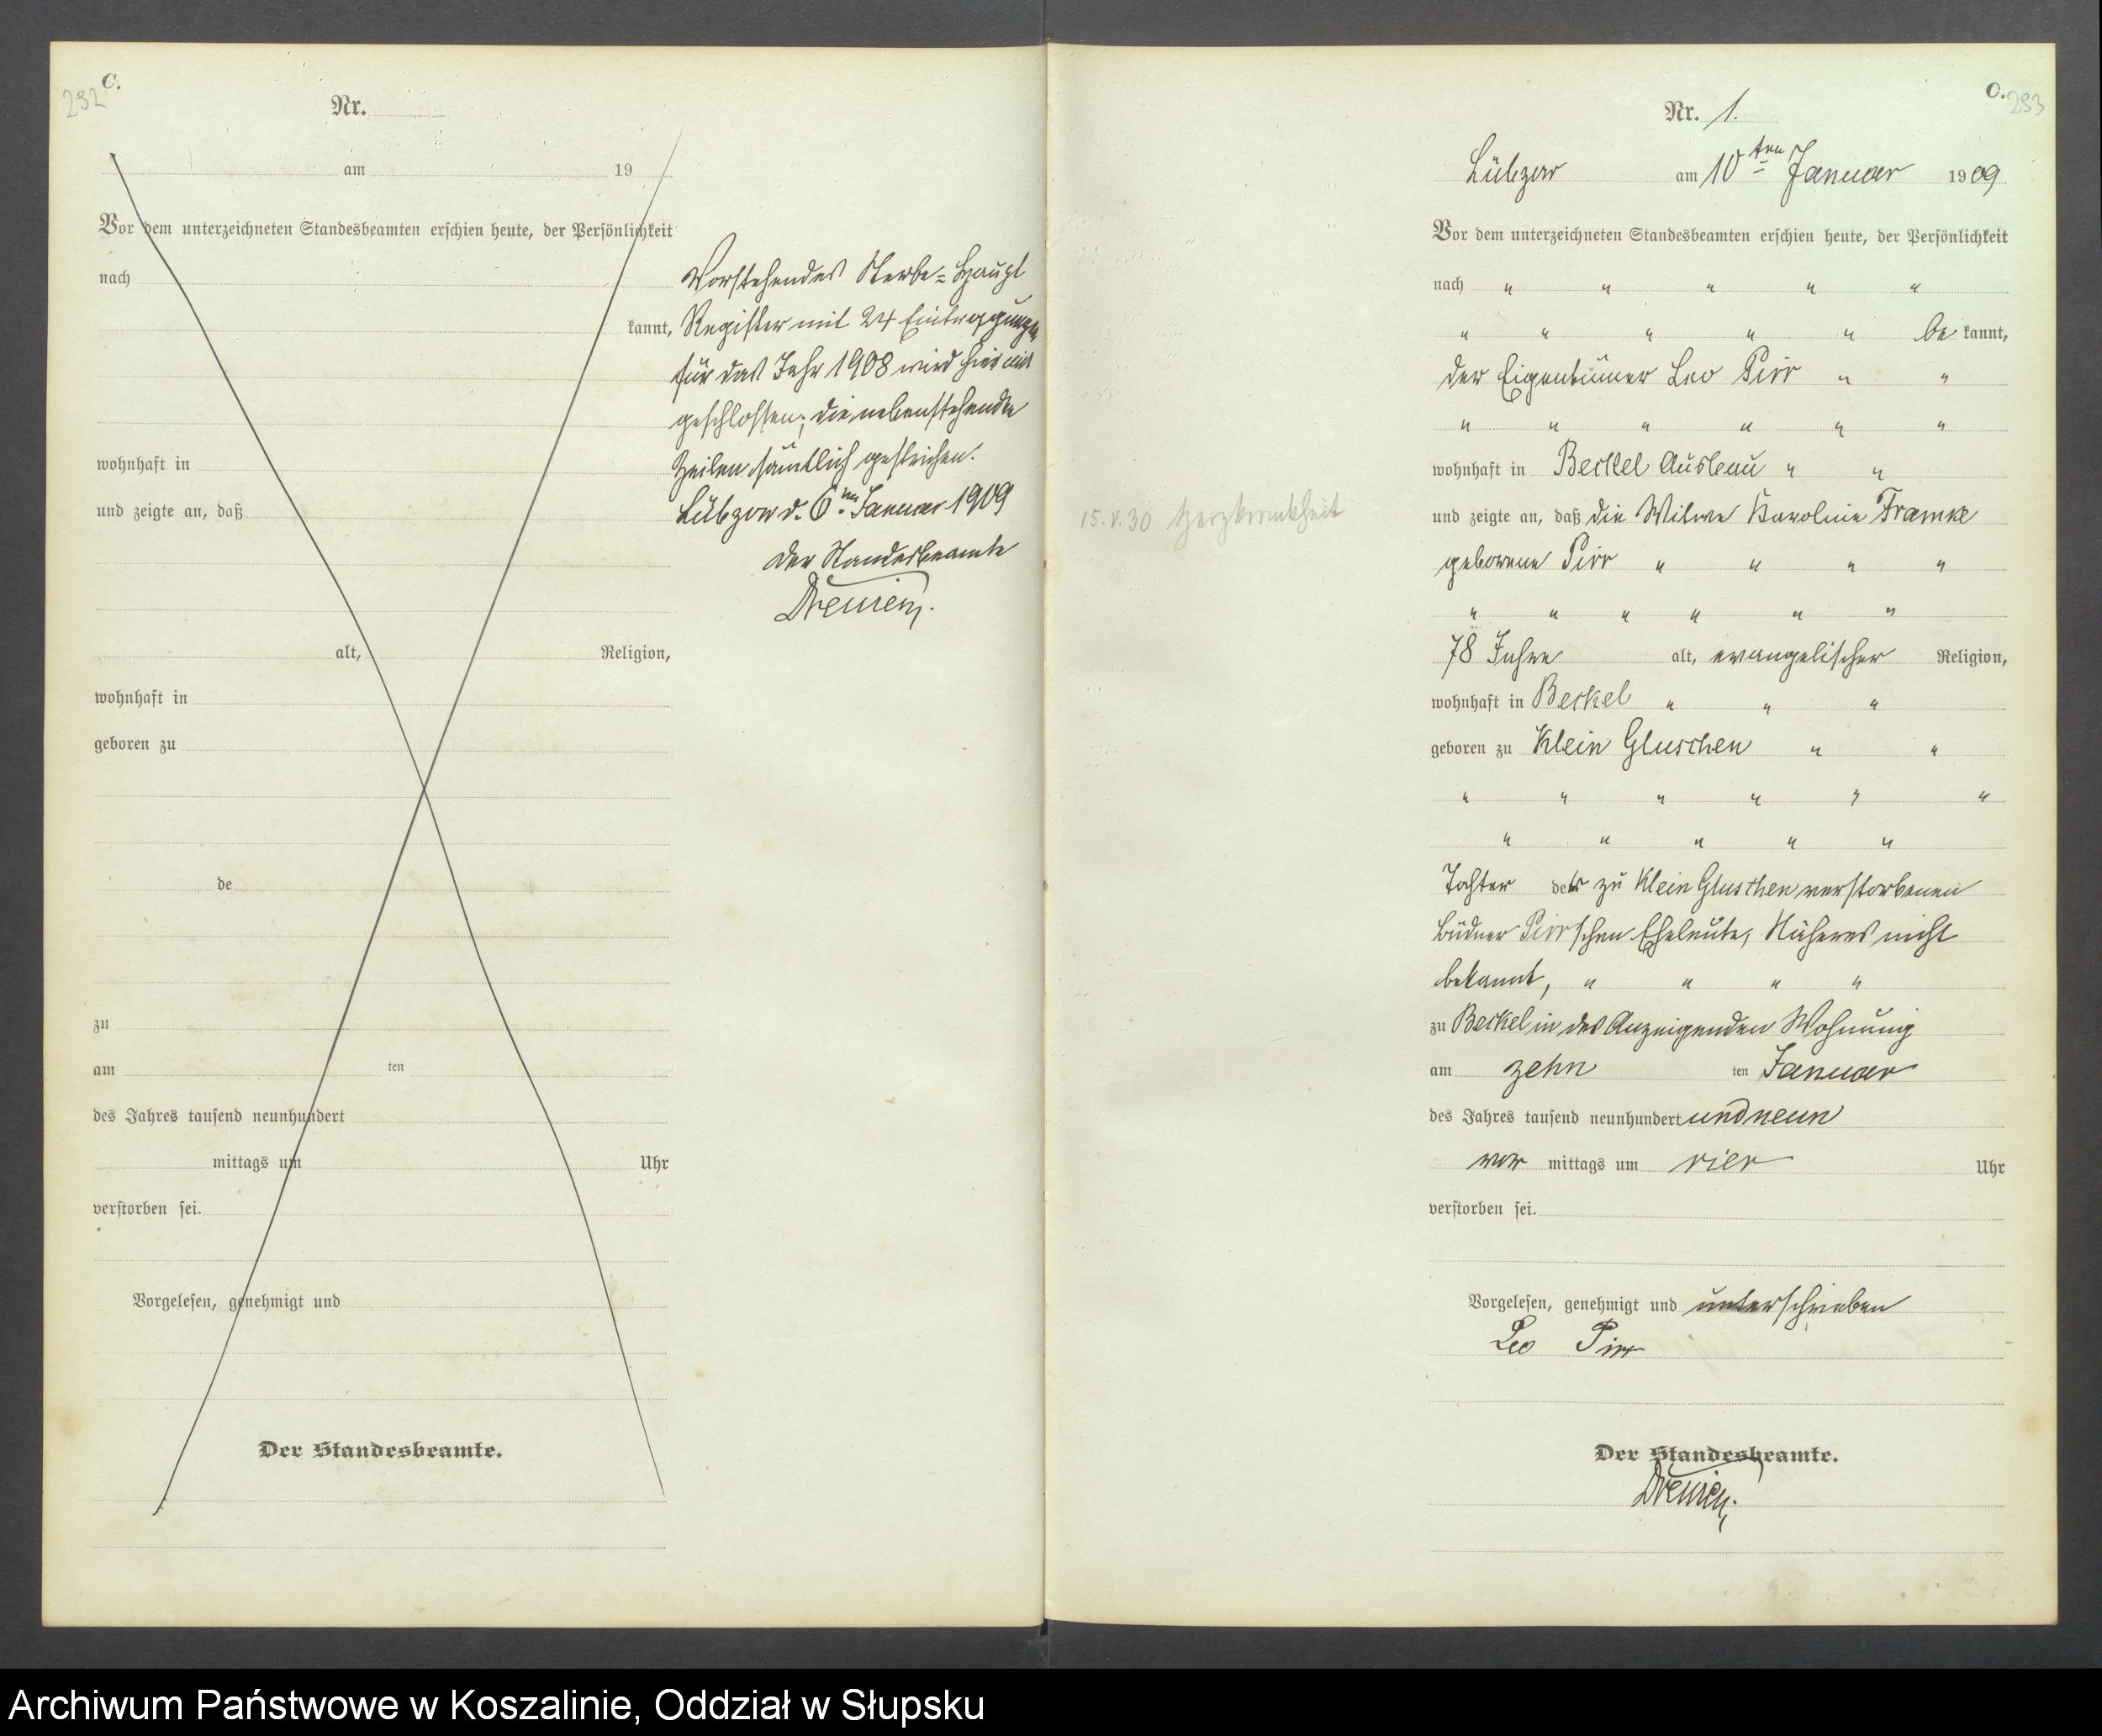 C.
232
Nr.
am 19
Vor dem unterzeichneten Standesbeamten erschien heute, der Persönlichkeit
nach
kannt,
wohnhaft in
und zeigte an, daß
alt, Religion,
wohnhaft in
geboren zu
de
zu
am ten
des Jahres tausend neunhundert
mittags um Uhr
verstorben sei.
Vorgelesen, genehmigt und
Der Standesbeamte.
Vorstehendes Sterbe-Haupt
Register mit 24 Eintragungen
für das Jahr 1908 wird hiermit
geschlossen; die nebenstehende
Zeilen sämtlich gestrichen.
Lübzow d. 6ten Januar 1909
Der Standesbeamte
C.
233
Nr. 1.
Lübzow am 10ten Januar 1909
Vor dem unterzeichneten Standesbeamten erschien heute, der Persönlichkeit
nach " " " " "
" " " " " be kannt,
der Eigentümer Leo Pirr " "
" " " " " "
wohnhaft in Beckel Ausbau " "
15.V.30 Herzkrankheit
und zeigte an, daß die Witwe Karoline Framke
geborene Pirr " " " "
" " " " " "
78 Jahre alt, evangelischer Religion,
wohnhaft in Beckel " " "
geboren zu Klein Gluschen " "
" " " " " "
" " " " "
Tochter der zu Klein Gluschen verstorbenen
Büdner Pirrschen Eheleute, Näheres nicht
bekannt, " " " "
zu Beckel in des Anzeigenden Wohnung
am zehn ten Januar
des Jahres tausend neunhundert und neun
vor mittags um vier Uhr
verstorben sei.
Vorgelesen, genehmigt und unterschrieben
Leo Pirr
Der Standesbeamte.
Archiwum Państwowe w Koszalinie, Oddział w Słupsku